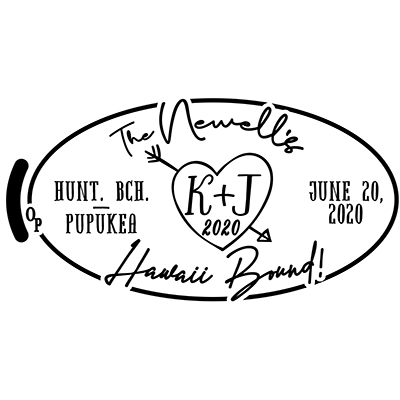 The Newell's
HUNT. BCH.
—
PUPUKEA
K+J
2020
JUNE 20,
2020
OP
Hawaii Bound!